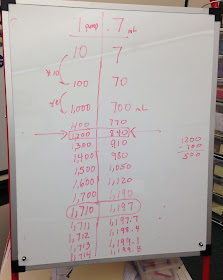 1 pump .7 mL
10 7
x10
100 70
x10
1,000 700 mL
1,100 770
1,200 840
1,300 910
1,400 980
1,500 1,050
1,600 1,120
1,700 1,190
1,710 1,197
1,711 1,197.7
1,712 1,198.4
1,713 1,199.1
1,714 1,199.8
1200
- 700
500